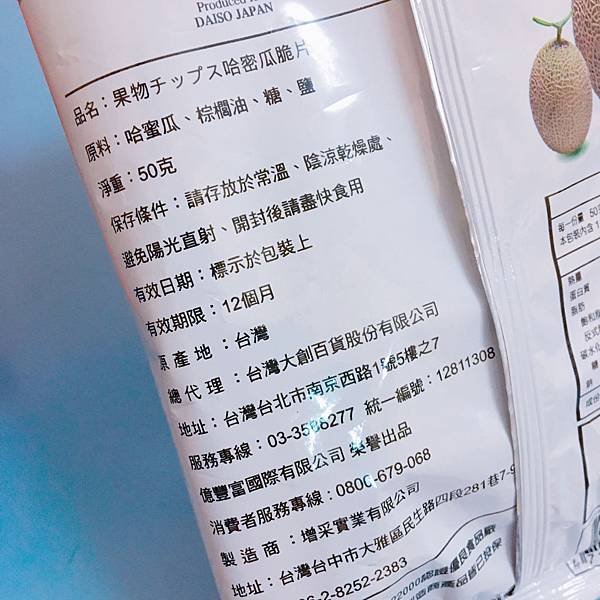 Produced
DAISO JAPAN
品名：果物チップス哈密瓜脆片
原料：哈蜜瓜、棕櫚油、糖、鹽
淨重：50克
保存條件：請存放於常溫、陰涼乾燥處、
避免陽光直射、開封後請盡快食用
有效日期：標示於包裝上
有效期限：12個月
原產地：台灣
總代理：台灣大創百貨股份有限公司
地址：台灣台北市南京西路1號5樓之7
服務專線：03-3586277 統一編號：12811308
億豐富國際有限公司 榮譽出品
消費者服務專線：0800-679-068
製造商：增采實業有限公司
地址：台灣台中市大雅區民生路四段281巷7-9
2-8252-2383
22000認證優良食品廠
產品皆已投保
每一份量 50
本包裝內含 1
熱量
蛋白質
脂肪
飽和
反式
碳水化
糖
鈉